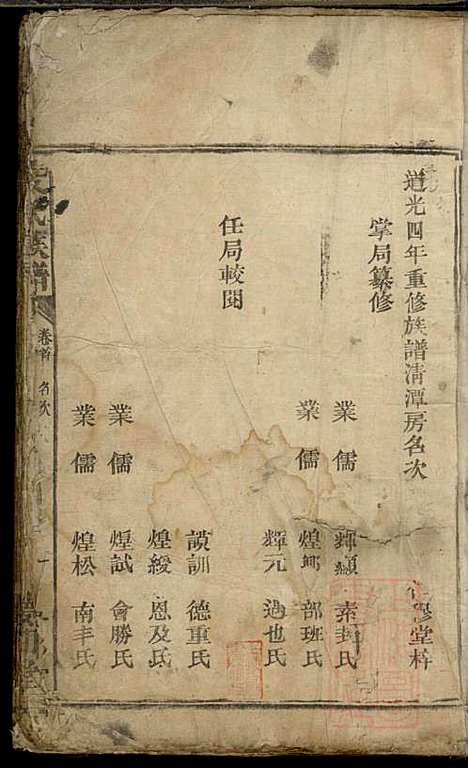 道光四年重修族譜清潭房名次
穆堂梓
掌局纂修
業儒 輝顯 素封氏
業儒 煌鄉 部班氏
輝元 過也氏
任局較閱
謨訓 德重氏
煌綬 恩及氏
業儒 煌試 會勝氏
業儒 煌松 南丰氏
氏族譜
卷首 名次
一
堂